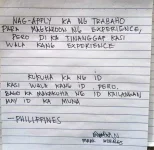 NAG-APPLY KA NG TRABAHO
PARA MAGKAROON NG EXPERIENCE,
PERO DI KA TINANGGAP KASI
WALA KANG EXPERIENCE
KUKUHA KA NG ID
KASI WALA KANG ID, PERO
BAGO KA MAKAKUHA NG ID KAILANGAN
MAY ID KA MUNA
-PHILIPPINES